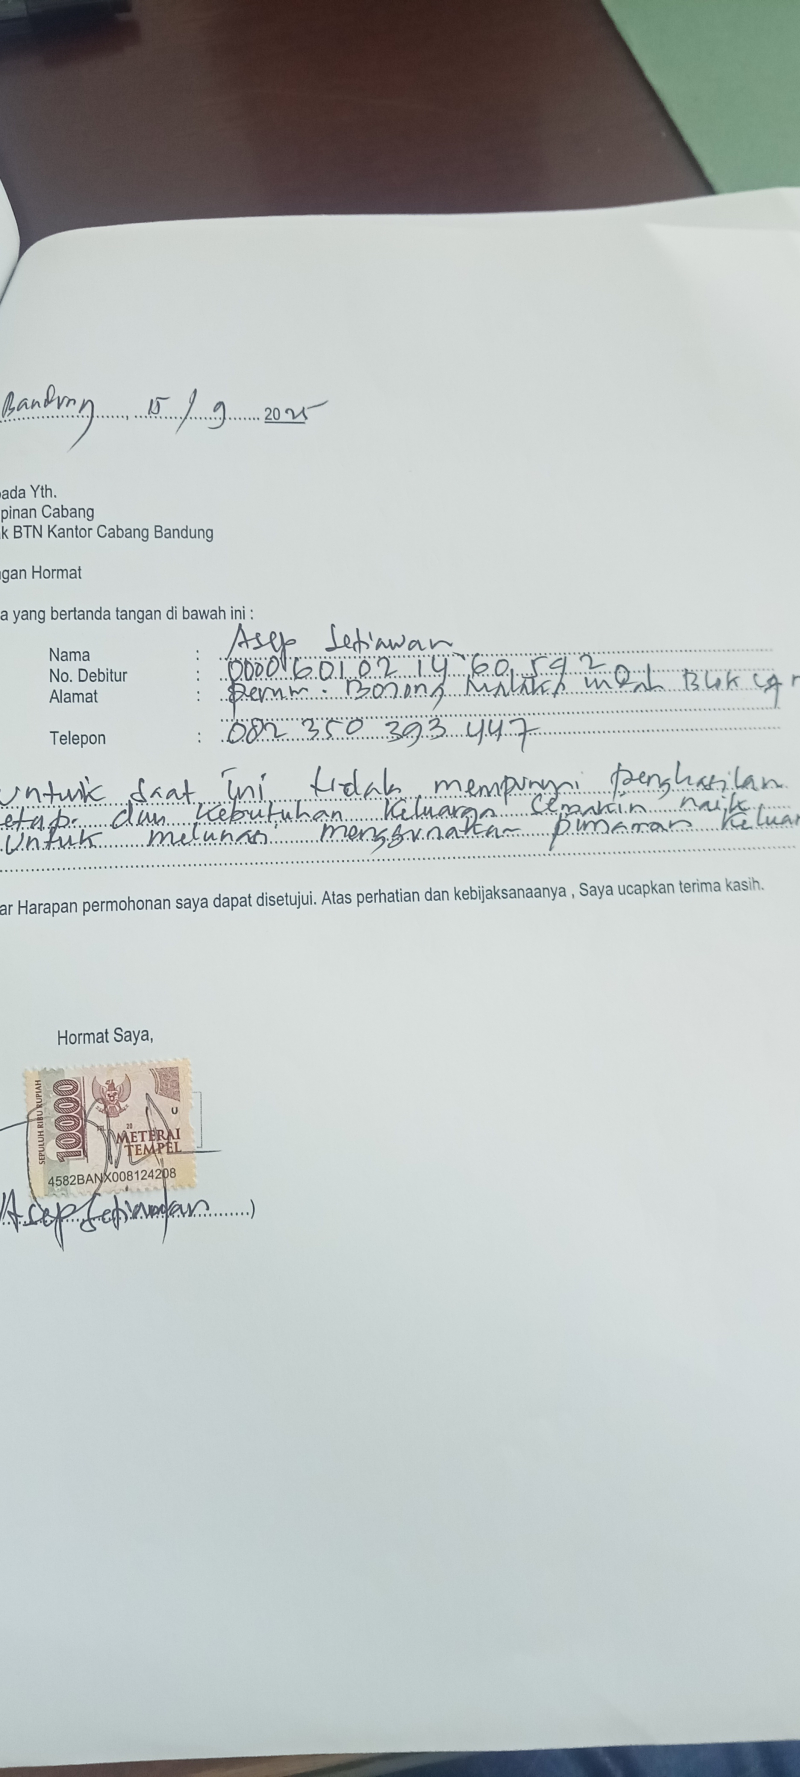 Bandung, 15 / 9 2025
ada Yth.
pinan Cabang
k BTN Kantor Cabang Bandung
gan Hormat
a yang bertanda tangan di bawah ini :
Nama : Asep Setiawan
No. Debitur : 00001601021460592
Alamat : perum. Bojong Malaka Indah Blok
Telepon : 082 350 393 447
untuk saat ini tidak mempunyai penghasilan
etap dan kebutuhan keluarga semakin naik
untuk melunasi menggunakan pinjaman keluar
ar Harapan permohonan saya dapat disetujui. Atas perhatian dan kebijaksanaanya , Saya ucapkan terima kasih.
Hormat Saya,
SEPULUH RIBU RUPIAH
10000
METERAI
TEMPEL
4582BANX008124208
Asep Setiawan )